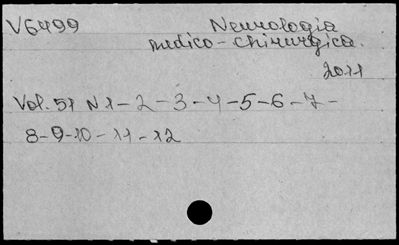 V6499 Neurologia
medico-chirurgica.
2011
Vol. 51 N 1-2-3-4-5-6-7-
8-9-10-11-12